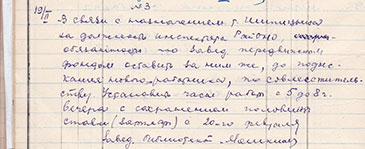 19/II №3
В связи с назначением т. Шипицына
на должность инспектора РайОНО,
обязанности по завед. передвижным
фондом оставить за ним же, до подыс-
кания нового работника, по совместитель-
ству. Установить часы работы с 5 до 8 г.
вечера с сохранением половины
ставки (зарплаты) с 20-го февраля
Завед. библиотекой